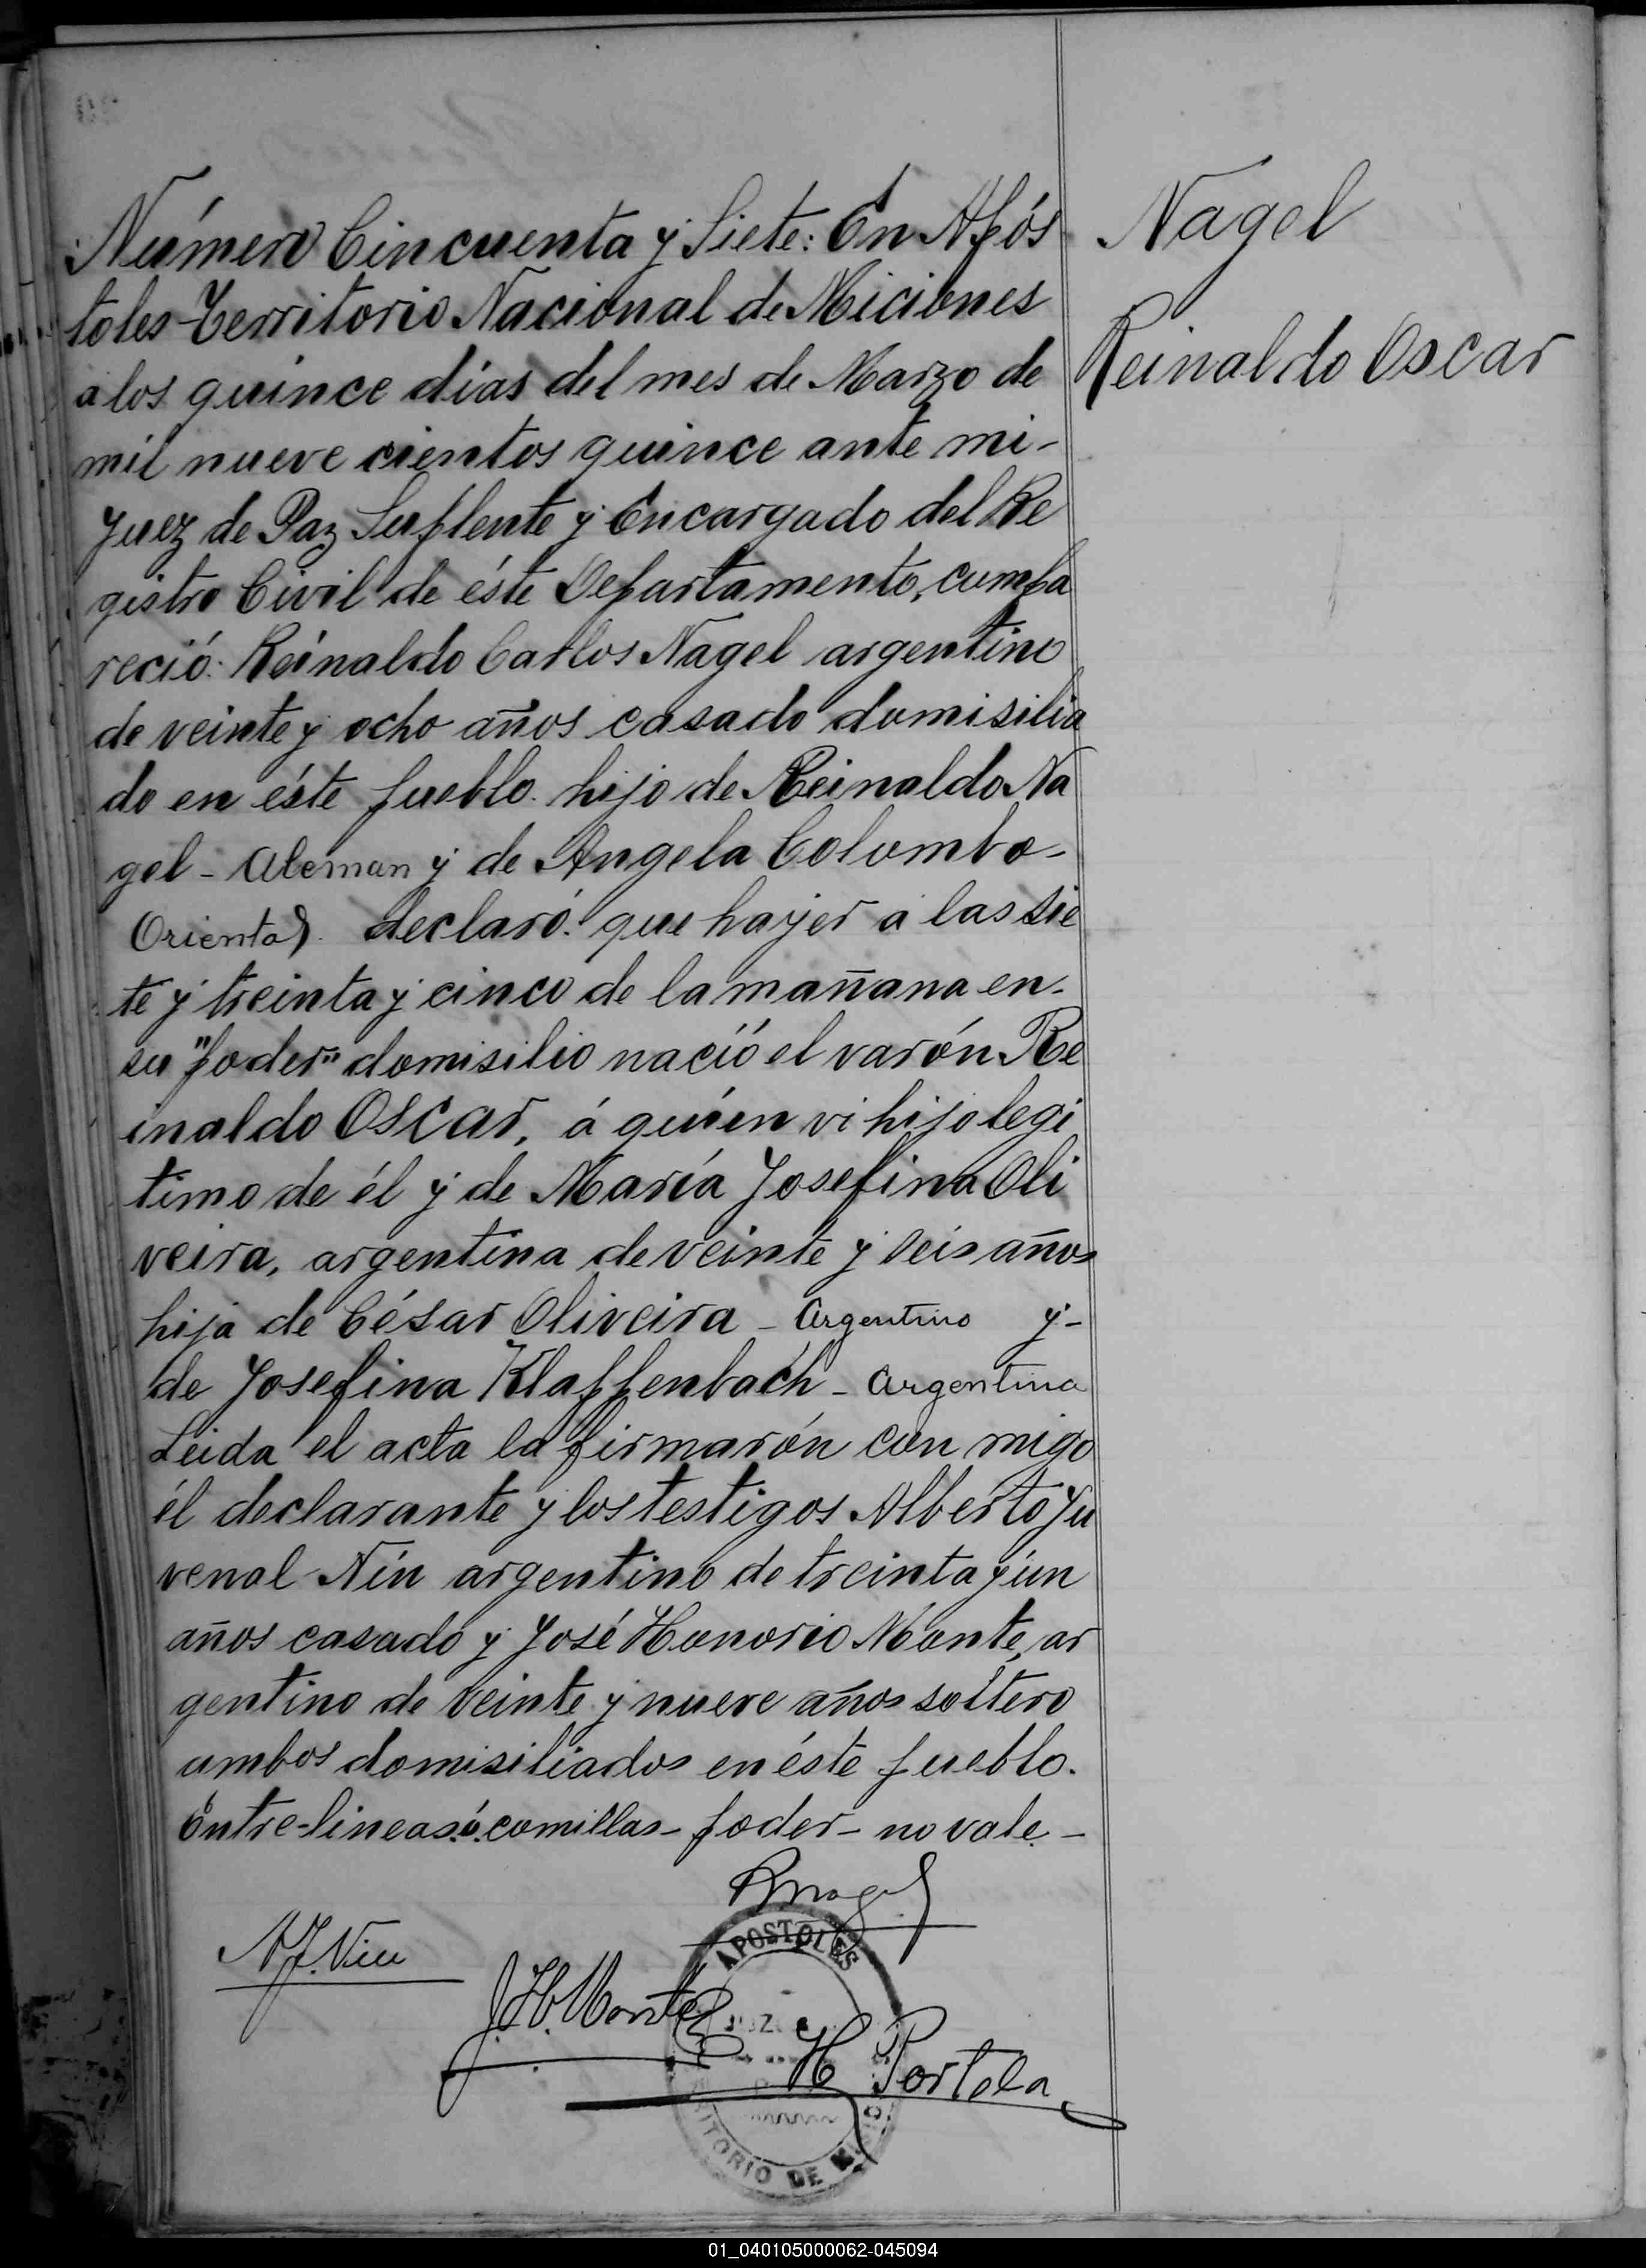 Nagel
Reinaldo Oscar
Número Cincuenta y Siete: En Após
toles Territorio Nacional de Miciones
a los quince días del mes de Marzo de
mil nueve cientos quince ante mi-
Juez de Paz Suplente y Encargado del Re
gistro Civil de éste Departamento, cumpa
reció: Reinaldo Carlos Nagel argentino
de veinte y ocho años casado domisilia
do en éste pueblo. hijo de Reinaldo Na
gel - Aleman y de Angela Colombo-
Oriental. declaró: que hayer a las sie
te y treinta y cinco de la mañana en-
su "poder" domisilio nació el varón Re
inaldo Oscar, á quien vi hijo legi
timo de él y de María Josefina Oli
veira, argentina de veinte y seis años
hija de César Oliveira - Argentino y-
de Josefina Klappenbach - Argentina
Leida el acta la firmarón con migo
él declarante y los testigos Alberto Ju
venal Nin argentino de treinta y un
años casado y José Honorio Monte, ar
gentino de veinte y nueve años soltero
ambos domisiliados en éste pueblo.
Entre-lineas ó comillas - poder - no vale -
RNagel
A.J. Nin
J.H. Monte
H Portela
APOSTOLES
JUZ
TORIO DE MI
01_040105000062-045094